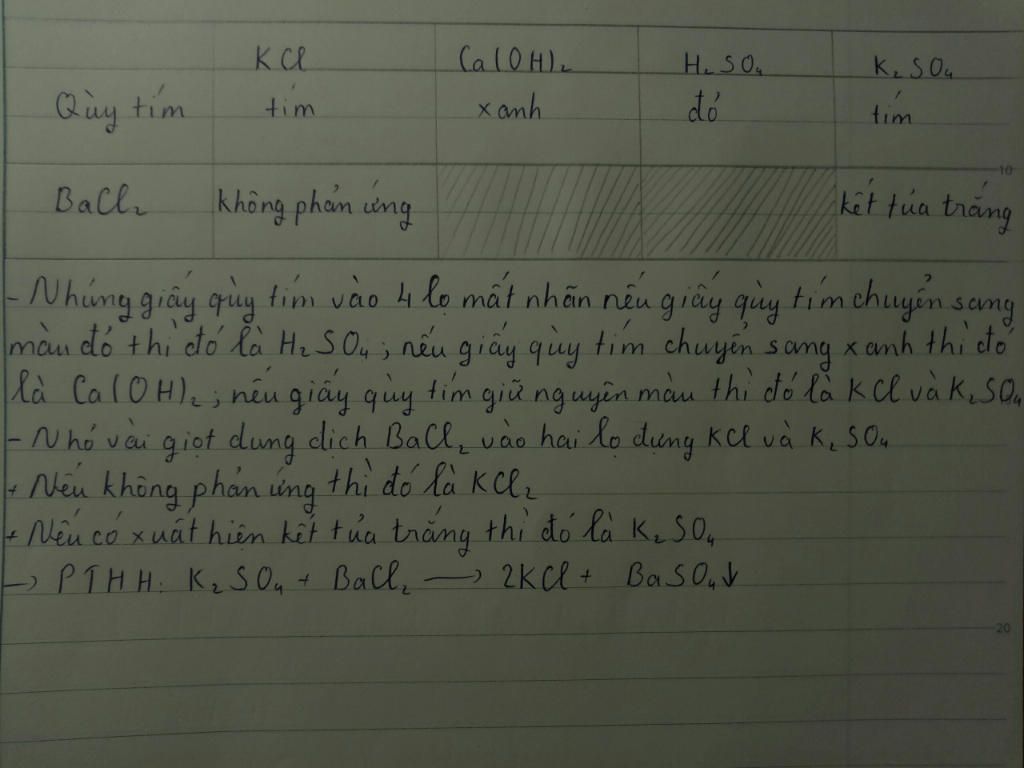 KCl Ca(OH)₂ H₂SO₄ K₂SO₄
Qùy tím tím xanh đỏ tím
10
BaCl₂ không phản ứng kết tủa trắng
- Nhúng giấy qùy tím vào 4 lọ mất nhãn nếu giấy qùy tím chuyển sang
màu đỏ thì đó là H₂SO₄; nếu giấy qùy tím chuyển sang xanh thì đó
là Ca(OH)₂; nếu giấy qùy tím giữ nguyên màu thì đó là KCl và K₂SO₄
- Nhỏ vài giọt dung dịch BaCl₂ vào hai lọ đựng KCl và K₂SO₄
+ Nếu không phản ứng thì đó là KCl₂
+ Nếu có xuất hiện kết tủa trắng thì đó là K₂SO₄
→ PTHH: K₂SO₄ + BaCl₂ → 2KCl + BaSO₄↓
20